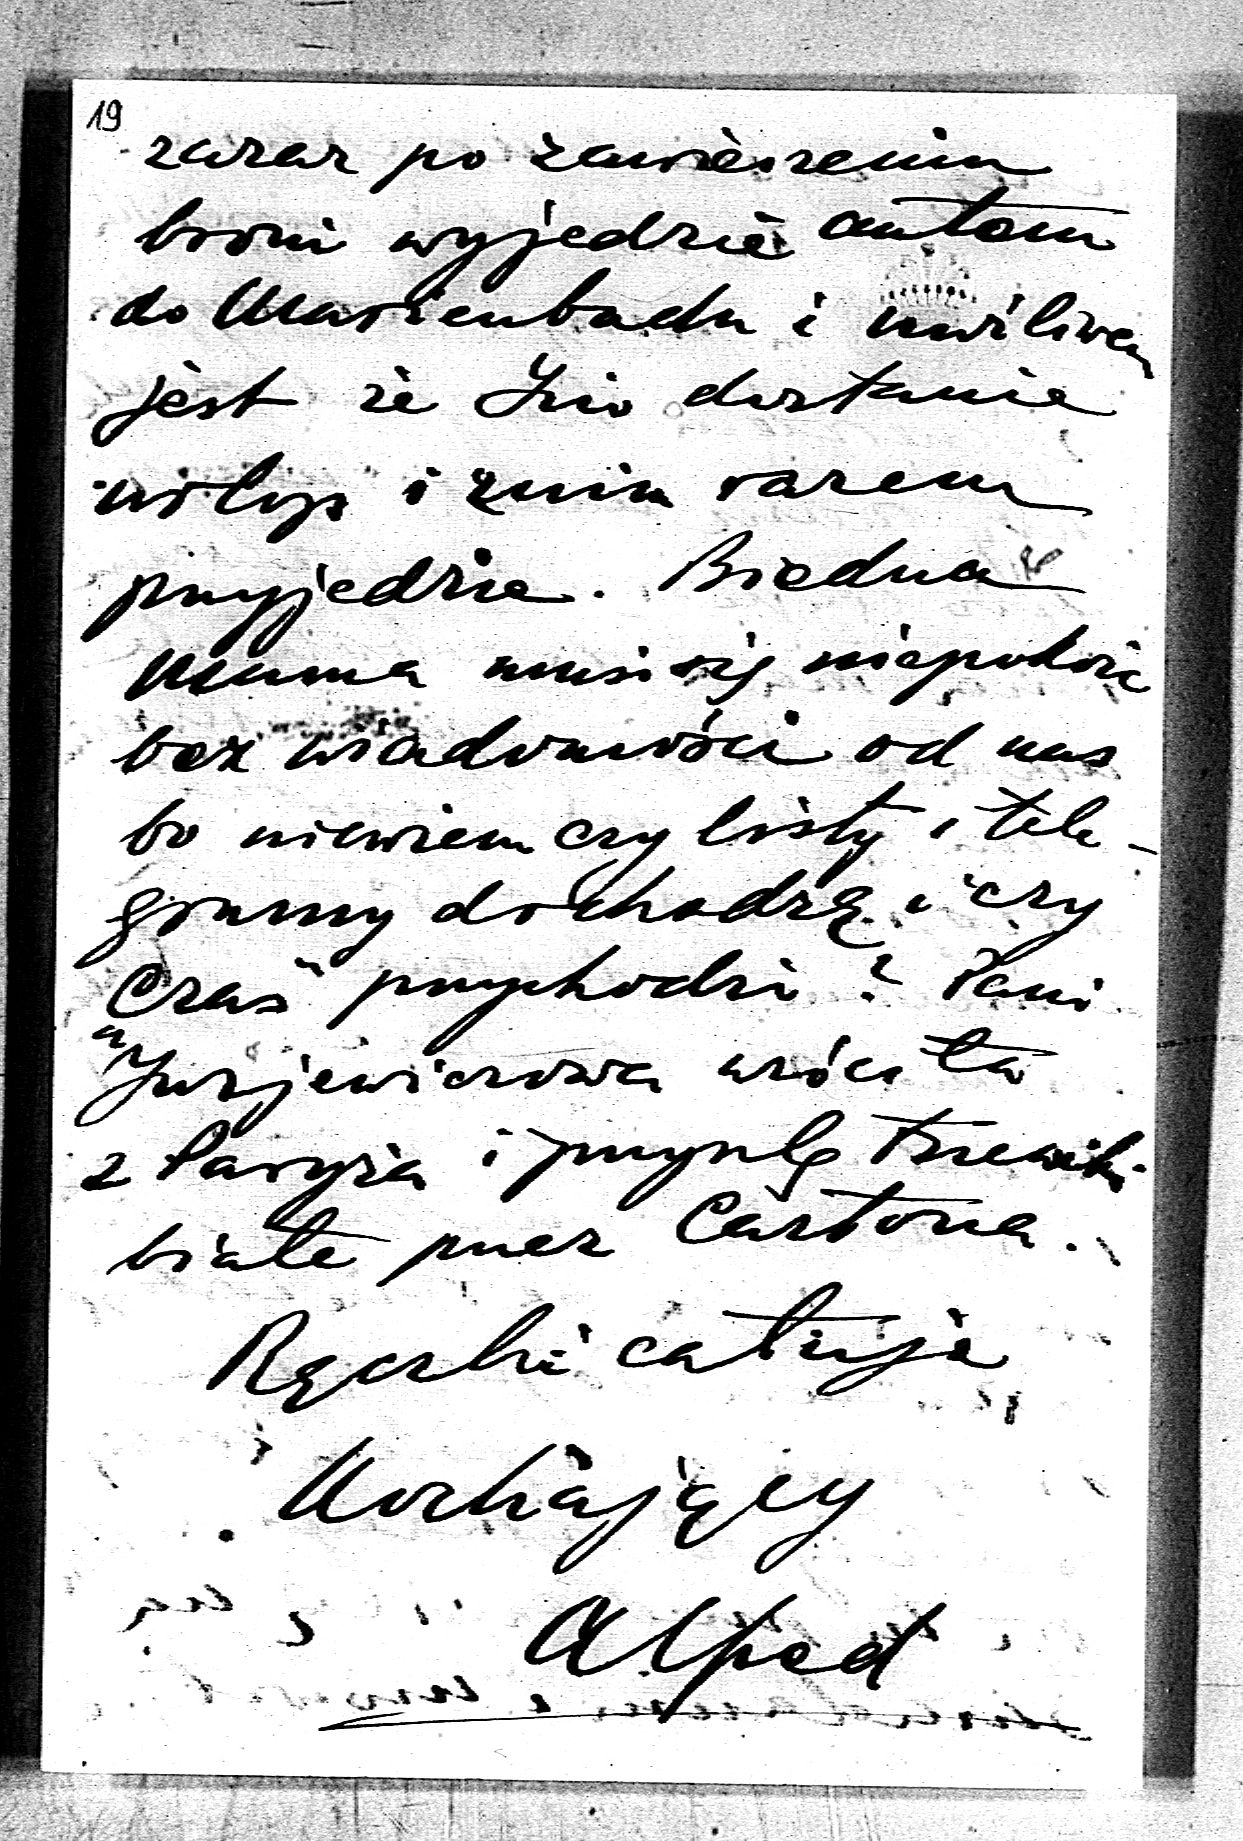 19
zaraz po zawieszeniu
broni wyjedzie autem
do Marienbadu i możliwem
jest że Izio dostanie
urlop i z nim razem
przyjedzie. Biedna
Mama musi się niepokoić
bez wiadomości od nas
bo niewiem czy listy i tele-
gramy dochodzą i czy
„Czas” przychodzi? Pani
Jurjewiczowa wróciła
z Paryża i przyszlę trzewiki
białe przez Castona.
Rączki całuję
Kochający
Alfred